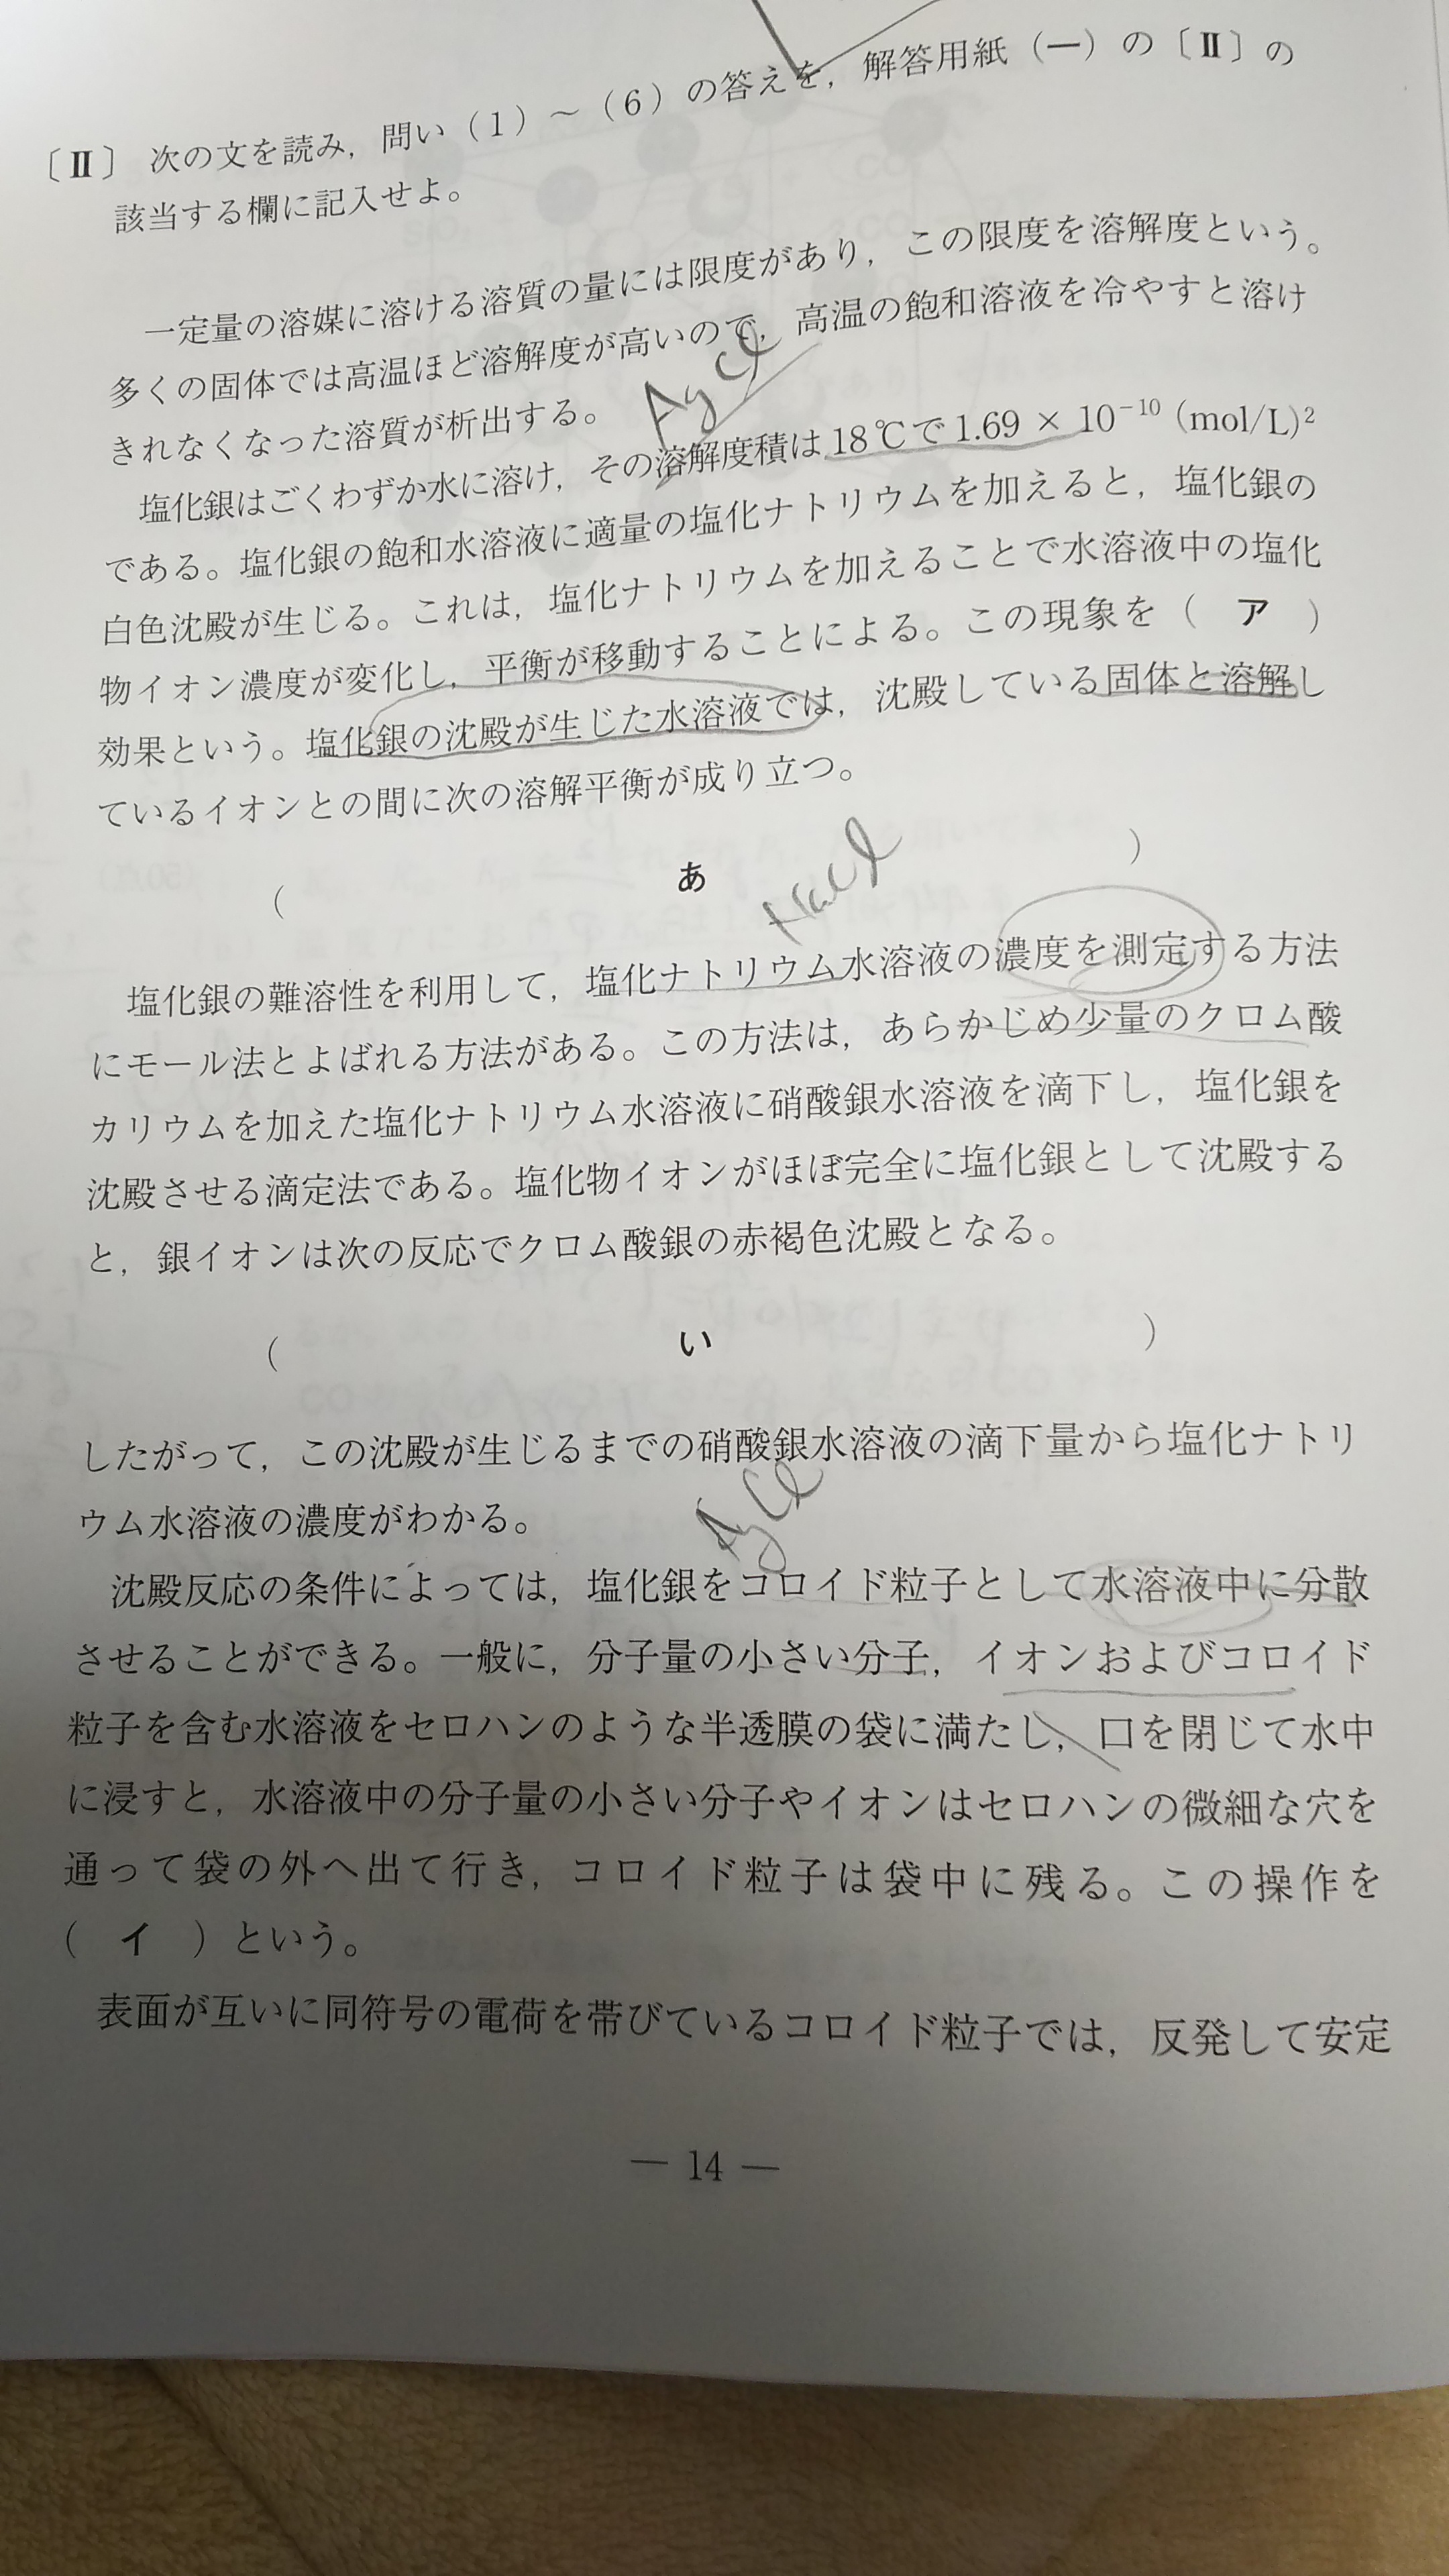 〔Ⅱ〕 次の文を読み，問い（1）～（6）の答えを，解答用紙（一）の〔Ⅱ〕の
該当する欄に記入せよ。
一定量の溶媒に溶ける溶質の量には限度があり，この限度を溶解度という。
多くの固体では高温ほど溶解度が高いので，高温の飽和溶液を冷やすと溶け
きれなくなった溶質が析出する。
AgCl
塩化銀はごくわずか水に溶け，その溶解度積は 18℃で 1.69 × 10⁻¹⁰ (mol/L)²
である。塩化銀の飽和水溶液に適量の塩化ナトリウムを加えると，塩化銀の
白色沈殿が生じる。これは，塩化ナトリウムを加えることで水溶液中の塩化
物イオン濃度が変化し，平衡が移動することによる。この現象を（ ア ）
効果という。塩化銀の沈殿が生じた水溶液では，沈殿している固体と溶解し
ているイオンとの間に次の溶解平衡が成り立つ。
（ あ ）
NaCl
塩化銀の難溶性を利用して，塩化ナトリウム水溶液の濃度を測定する方法
にモール法とよばれる方法がある。この方法は，あらかじめ少量のクロム酸
カリウムを加えた塩化ナトリウム水溶液に硝酸銀水溶液を滴下し，塩化銀を
沈殿させる滴定法である。塩化物イオンがほぼ完全に塩化銀として沈殿する
と，銀イオンは次の反応でクロム酸銀の赤褐色沈殿となる。
（ い ）
したがって，この沈殿が生じるまでの硝酸銀水溶液の滴下量から塩化ナトリ
ウム水溶液の濃度がわかる。
AgCl
沈殿反応の条件によっては，塩化銀をコロイド粒子として水溶液中に分散
させることができる。一般に，分子量の小さい分子，イオンおよびコロイド
粒子を含む水溶液をセロハンのような半透膜の袋に満たし，口を閉じて水中
に浸すと，水溶液中の分子量の小さい分子やイオンはセロハンの微細な穴を
通って袋の外へ出て行き，コロイド粒子は袋中に残る。この操作を
（ イ ）という。
表面が互いに同符号の電荷を帯びているコロイド粒子では，反発して安定
— 14 —